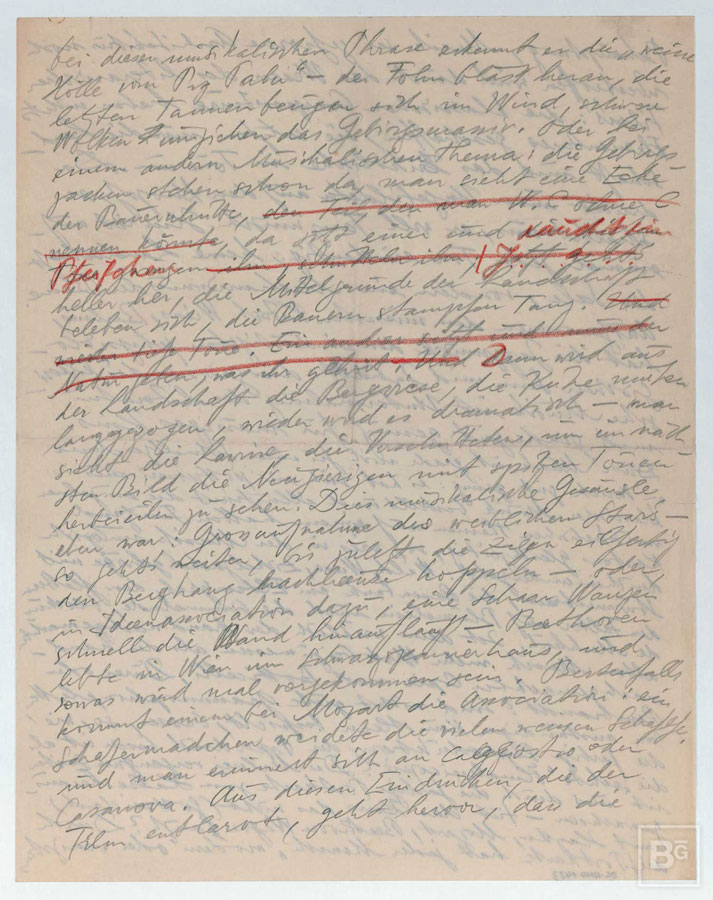 bei dieser musikalischen Phrase erkennt er die „weisse
Hölle vom Piz Palu“ – der Föhn bläst heran, die
letzten Tannen beugen sich im Wind, schwere
Wolken umziehen das Gebirgsmassiv. Oder bei
einem andern Musikalischen Thema: die Gebirgs
zacken stehen schon da, man sieht eine Ecke
der Bauernhütte, den Teil, den man W.C ohne C
nennen könnte, da sitzt einer und raucht sein
Pfeifchen
heller her, die Mittelgründe der Landschaft
beleben sich, die Bauern stampfen Tanz. Und
wieder tiefe Töne. Ein andrer sitzt und muss der
Natur geben was ihr gehört. Und Dann wird aus
der Landschaft die Bergwiese, die Kühe muhen
langgezogen, wieder wird es dramatisch – man
sieht die Lawine, die Verschütteten, um im näch
sten Bild die Neugierigen mit spitzen Tönen
herbeieilen zu sehen. Dies musikalische Gesäusle
eben war: Grosaufnahme des weiblichen Stars –
so gehts weiter, bis zuletzt die Zigen eilfertig
den Berghang nachhause hoppeln – oder,
in Ideenassociation dazu, eine Schaar Wanzen
schnell die Wand hinaufläuft – Beethoven
lebte in Wien im Schwarzspanierhaus, und
sowas wird mal vorgekommen sein. Bestenfalls
kommt einem bei Mozart die Association: ein
Schäfermädchen weidete die vielen weissen Schäfche,
und man erinnert sich an Cagliostro oder
Casanova. Aus diesen Eindrücken, die der
Film entlarvt, geht hervor, dass die
BG